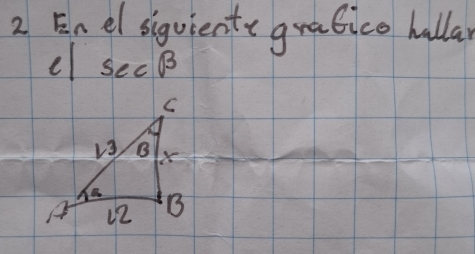 2 En el siguiente grafico hallar
el sec β
C
13 β x
A α B
12